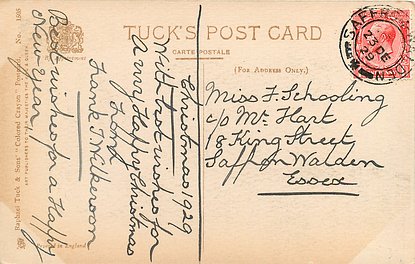 TUCK'S POST CARD
CARTE POSTALE
(FOR ADDRESS ONLY.)
SAFFRON
23 DE
29
Miss F. Schooling
c/o Mr. Hart
18 King Street
Saffron Walden
Essex
Christmas 1929
With best wishes for
A very Happy Christmas
from
Frank
Best wishes for a Happy
New Year
Raphael Tuck & Sons' "Colored Crayon" Postcard No. 1805
Printed in England